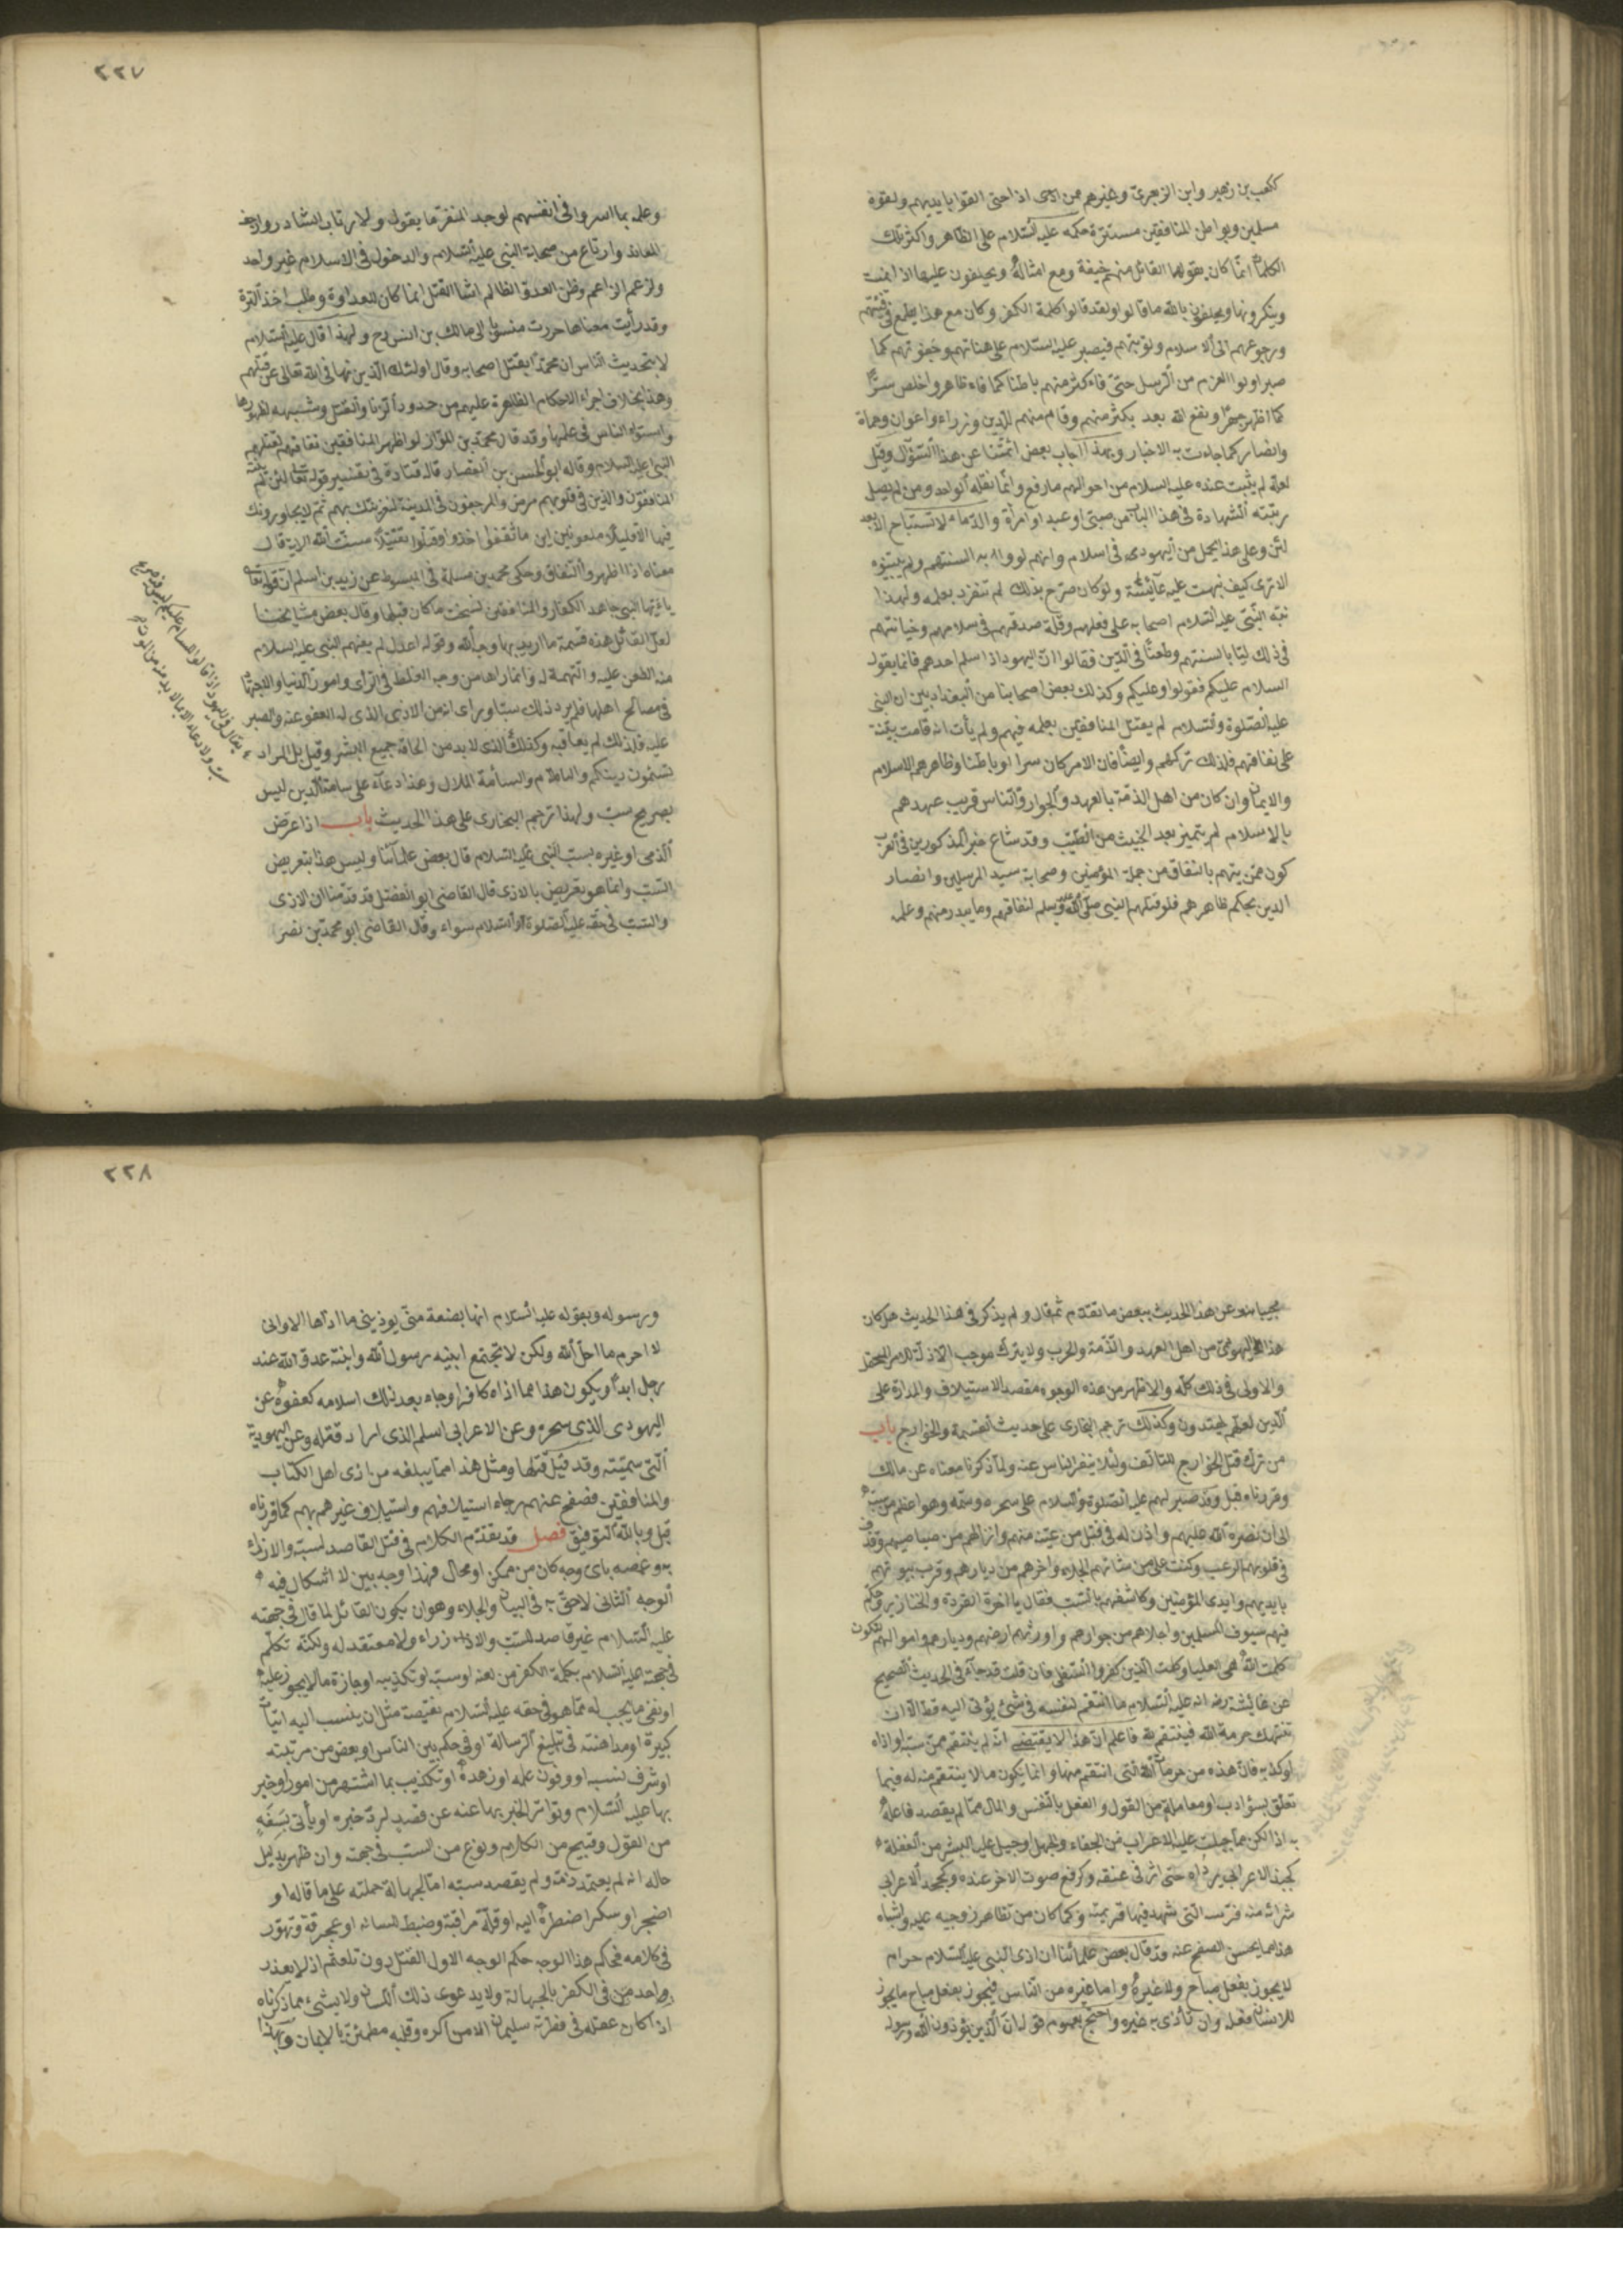 ككعب بن زهير وابن الزبعرى وغيرهم ممن اذى اذاحتى القوا بايديهم ولقوه
مسلمين وبواطن المنافقين مستترة وحكمه عليه السلام على الظاهر واكثر تلك
الكلمات انما كان يقولها القائل منهم خيفة ومع امثاله ويحلفون عليها اذا نميت
وينكرونها ويحلفون بالله ما قالوا ولقد قالوا كلمة الكفر وكان مع هذا يطمع في فيئتهم
ورجوعهم الى الاسلام وتوبتهم فيصبر عليه السلام على هناتهم وجفوتهم كما
صبر اولوا العزم من الرسل حتى فاء كثير منهم باطنا كما فاء ظاهر واخلص سرا
كما اظهر جهرا ونفع الله بعد بكثير منهم وقام منهم للدين وزراء واعوان وحماة
وانصار كما جاءت به الاخبار وبهذا اجاب بعض ائمتنا عن هذا السؤال وقيل
لعله لم يثبت عنده عليه السلام من احوالهم ما رفع وانما نقله الواحد ومن لم يصل
رتبته الشهادة في هذا الباب من صبي او عبد او امرأة والدماء لا تستباح الا بعد
لين وعلى هذا يحمل من اليهودى في اسلام وانهم لووا به السنتهم ولم يبينوه
الا ترى كيف نبهت عليه عائشة ولو كان صرح بذلك لم تنفرد بعلمه ولهذا
نبه النبي عليه السلام اصحابه على فعلهم وقلة صدقهم في سلامهم وخيانتهم
في ذلك ليا بالسنتهم وطعنا في الدين فقالوا ان اليهود اذا سلم احدهم فانما يقول
السلام عليكم فقولوا وعليكم وكذلك بعض اصحابنا من البغداديين ان النبي
عليه الصلوة والسلام لم يقتل المنافقين بعلمه فيهم ولم يأت انه قامت بينة
على نفاقهم فلذلك تركهم وايضا فان الامر كان سرا لو باطنا وظاهرهم الاسلام
والايمان وان كان من اهل الذمة بالعهد والجوار والناس قريب عهدهم
بالاسلام لم يتميز بعد الخبيث من الطيب وقد شاع خبر المذكورين في العرب
كون ممن يتهم بالنفاق من جملة المؤمنين وصحابة سيد المرسلين وانصار
الدين بحكم ظاهرهم فلو قتلهم النبي صلى الله عليه وسلم لنفاقهم وما يبدر منهم وعلمه
٢٢٧
وعلمه بما اسروا في انفسهم لوجد المنفر ما يقول ولارتاب الشارد وارجف
المعاند وارتاع من صحابة النبي عليه السلام والدخول في الاسلام غير واحد
ولزعم الزاعم وظن العدو الظالم انما القتل انما كان للعداوة وطلب اخذ الترة
وقد رأيت معنا ما حررت منسوبا الى مالك بن انس رح ولهذا قال عليه السلام
لا يتحدث الناس ان محمدا يقتل اصحابه وقال اولئك الذين نهاني الله تعالى عن قتلهم
وهذا بخلاف اجراء الاحكام الظاهرة عليهم من حدود الزنا والقتل وشبهه لظهورها
واستواء الناس في علمها وقد قال محمد بن المواز لو اظهر المنافقين نفاقهم لقتلهم
النبي عليه السلام وقاله ابو الحسن بن القصار قال قتادة في تفسير قوله تعالى لئن لم ينته
المنافقون والذين في قلوبهم مرض والمرجفون في المدينة لنغرينك بهم ثم لا يجاورونك
فيها الا قليلا ملعونين اين ما ثقفوا اخذوا وقتلوا تقتيلا سنت الله الاية قال
معناه اذا اظهروا النفاق وحكى محمد بن مسلمة في المبسوط عن زيد بن اسلم ان قوله تعالى
يا ايها النبي جاهد الكفار والمنافقين نسخت ما كان قبلها وقال بعض مشايخنا
لعل القائل هذه قسمة ما اريد بها وجه الله وقوله اعدل لم يفهم النبي عليه السلام
منه الطعن عليه والتهمة له وانما راها من وجه الغلط في الراى وامور الدنيا والاجتهاد
في مصالح اهلها فلم ير ذلك سبا وراى انه من الاذى الذى له العفو عنه والصبر
عليه فلذلك لم يعاقبه وكذلك الذى لا بد من الحاقه جميع البشر وقيل بل المراد
تسئمون دينكم والسام والسأمة الملال وهذا دعاء على سامة الدين ليس
بصريح سب ولهذا ترجم البخارى على هذا الحديث باب اذا عرض
الذمى او غيره بسب النبي عليه السلام قال بعض علمائنا وليس هذا بتعريض
السب وانما هو تعريض بالاذى قال القاضى ابو الفضل قد قدمنا ان الاذى
والسب في حقه عليه الصلوة والسلام سواء وقال القاضى ابو محمد بن نصر
مجيبا عن هذا الحديث ببعض ما تقدم ثم قال ولم يذكر في هذا الحديث هل كان
هذا اليهودى من اهل العهد والذمة والحرب ولا يترك موجب الادلة للامر المحتمل
والاولى في ذلك كله والاظهر من هذه الوجوه مقصد الاستيلاف والمداراة على
الدين لعلهم يهتدون وكذلك ترجم البخارى على حديث القسمة والخوارج باب
من ترك قتل الخوارج للتالف ولئلا ينفر الناس عنه ولما ذكرنا معناه عن مالك
وقررناه قبل وقد صبر لهم عليه الصلوة والسلام على سحره وسمه وهو اعظم من سبه
الى ان نصره الله عليهم واذن له في قتل من عينه منهم وانزالهم من صياصيهم وقذف
في قلوبهم الرعب وكتب على من شاء منهم الجلاء واخرجهم من ديارهم وخرب بيوتهم
بايديهم وايدى المؤمنين وكاشفهم بالسب فقال يا اخوة القردة والخنازير وحكم
فيهم سيوف المسلمين واجلاهم من جوارهم واورثهم ارضهم وديارهم واموالهم لتكون
كلمت الله هى العليا وكلمت الذين كفروا السفلى فان قلت قد جاء في الحديث الصحيح
عن عائشة رضه انه عليه السلام ما انتقم لنفسه في شئ يؤتى اليه قط الا ان
تنتهك حرمة الله فينتقم لله فاعلم ان هذا لا يقتضى انه لم ينتقم ممن سبه او اذاه
او كذبه فان هذه من حرمات الله التى انتقم منها وانما يكون ما لا ينتقم منه له فيما
تعلق بسوء ادب او معاملة من القول والفعل بالنفس والمال مما لم يقصد فاعله
به اذا لكن مما جبلت عليه الاعراب من الجفاء والجهل او جبل عليه البشر من الغفلة
كجبذ الاعرابى رداءه حتى اثر في عنقه وكرفع صوت الاخر عنده وكجحد الاعرابى
شرائه منه فرسه التى شهد فيها خزيمة وكما كان من تظاهر زوجيه عليه واشباه
هذا مما يحسن الصفح عنه وقد قال بعض علمائنا ان اذى النبي عليه السلام حرام
لا يجوز بفعل مباح ولا غيره واما غيره من الناس فيجوز بفعل مباح مايجوز
للانسان فعله وان تأذى به غيره واحتج بعموم قوله ان الذين يؤذون الله ورسوله
٢٢٨
ورسوله وبقوله عليه السلام انها بضعة منى يوذينى ما اذاها الا وانى
لا احرم ما احل الله ولكن لا تجتمع ابنة رسول الله وابنة عدو الله عند
رجل ابدا ويكون هذا مما اذاه كافر او جاء بعد ذلك اسلامه كعفوه عن
اليهودى الذى سحره وعن الاعرابى اسلم الذى اراد قتله وعن اليهودية
التى سمته وقد قيل قتلها ومثل هذا مما يبلغه من اذى اهل الكتاب
والمنافقين فصفح عنهم رجاء استيلافهم واستيلاف غيرهم بهم كما قررناه
قبل وبالله التوفيق فصل قد تقدم الكلام في قتل القاصد لسبه والازراء
به وغمصه باى وجه كان من ممكن او محال فهذا وجه بين لا اشكال فيه
الوجه الثانى لاحق به في البيان والجلاء وهو ان يكون القائل لما قال في جهته
عليه السلام غير قاصد للسب والازراء ولا معتقد له ولكنه تكلم
في جهته عليه السلام بكلمة الكفر من لعنه او سبه او تكذيبه او اجازة ما لا يجوز عليه
او نفى ما يجب له مما هو في حقه عليه السلام نقيصة مثل ان ينسب اليه اتيان
كبيرة او مداهنة في تبليغ الرسالة او في حكم بين الناس او بعض من مرتبته
او شرف نسبه او وفور علمه او زهده او تكذيب بما اشتهر من امور اخبر
بها عليه السلام وتواتر الخبر بها عنه عن قصد لرد خبره او يأتى بسفه
من القول وقبيح من الكلام ونوع من السب في جهته وان ظهر بدليل
حاله انه لم يعتمد ذمه ولم يقصد سبه اما لجهالة حملته على ما قاله او
اضجر او سكر اضطره اليه او قلة مراقبة وضبط للسانه او عجرفة وتهور
في كلامه فحكم هذا الوجه حكم الوجه الاول القتل دون تلعثم اذ لا يعذر
واحد من في الكفر بالجهالة ولا بدعوى ذلك اللسان ولا بشئ مما ذكرناه
اذا كان عقله في فطرته سليما الا من اكره وقلبه مطمئن بالايمان وبهذا